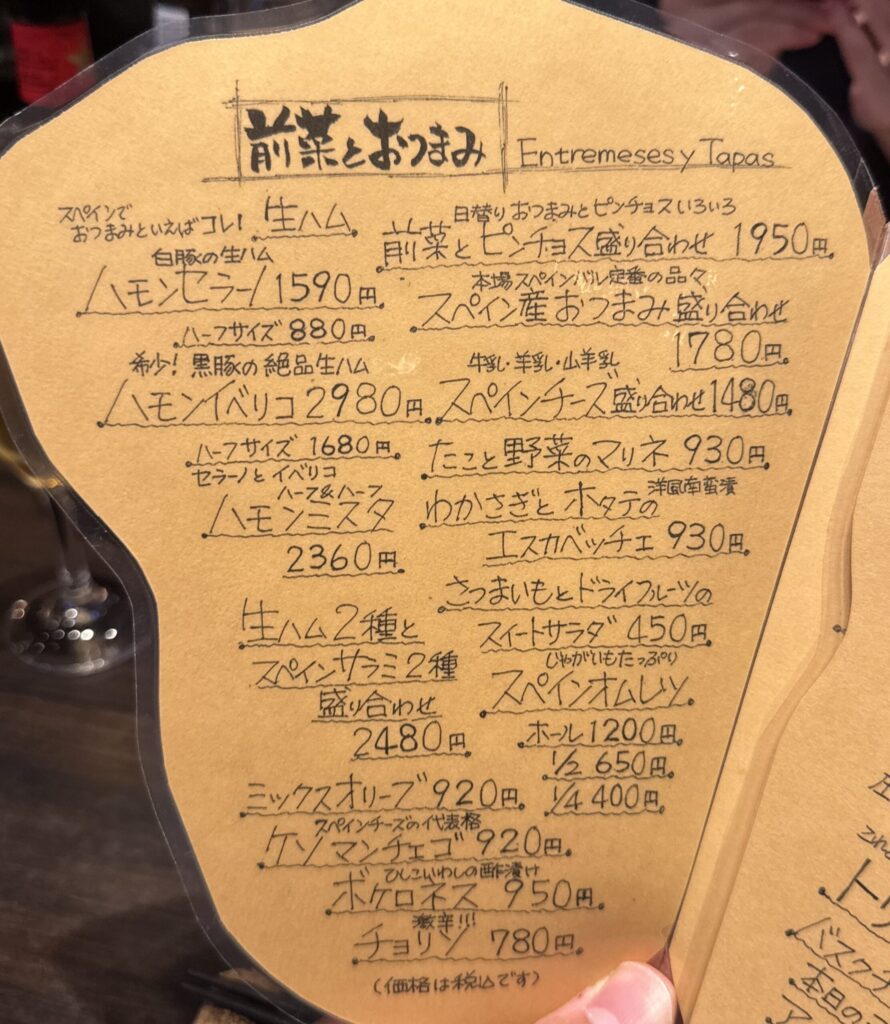 前菜とおつまみ Entremeses y Tapas
スペインで
おつまみといえばコレ!
生ハム
白豚の生ハム
ハモンセラーノ 1590円
ハーフサイズ 880円
希少! 黒豚の絶品生ハム
ハモンイベリコ 2980円
ハーフサイズ 1680円
セラーノとイベリコ
ハーフ&ハーフ
ハモンミスタ
2360円
生ハム2種と
スペインサラミ2種
盛り合わせ
2480円
ミックスオリーブ 920円
スペインチーズの代表格
ケソ マンチェゴ 920円
ひしこいわしの酢漬け
ボケロネス 950円
激辛!!!
チョリソ 780円
(価格は税込です)
日替り おつまみとピンチョスいろいろ
前菜とピンチョス盛り合わせ 1950円
本場スペインバル定番の品々
スペイン産おつまみ盛り合わせ
1780円
牛乳・羊乳・山羊乳
スペインチーズ盛り合わせ 1480円
たこと野菜のマリネ 930円
わかさぎとホタテの 洋風南蛮漬
エスカベッチェ 930円
さつまいもとドライフルーツの
スイートサラダ 450円
じゃがいもたっぷり
スペインオムレツ
ホール 1200円
1/2 650円
1/4 400円
バスク
本日の